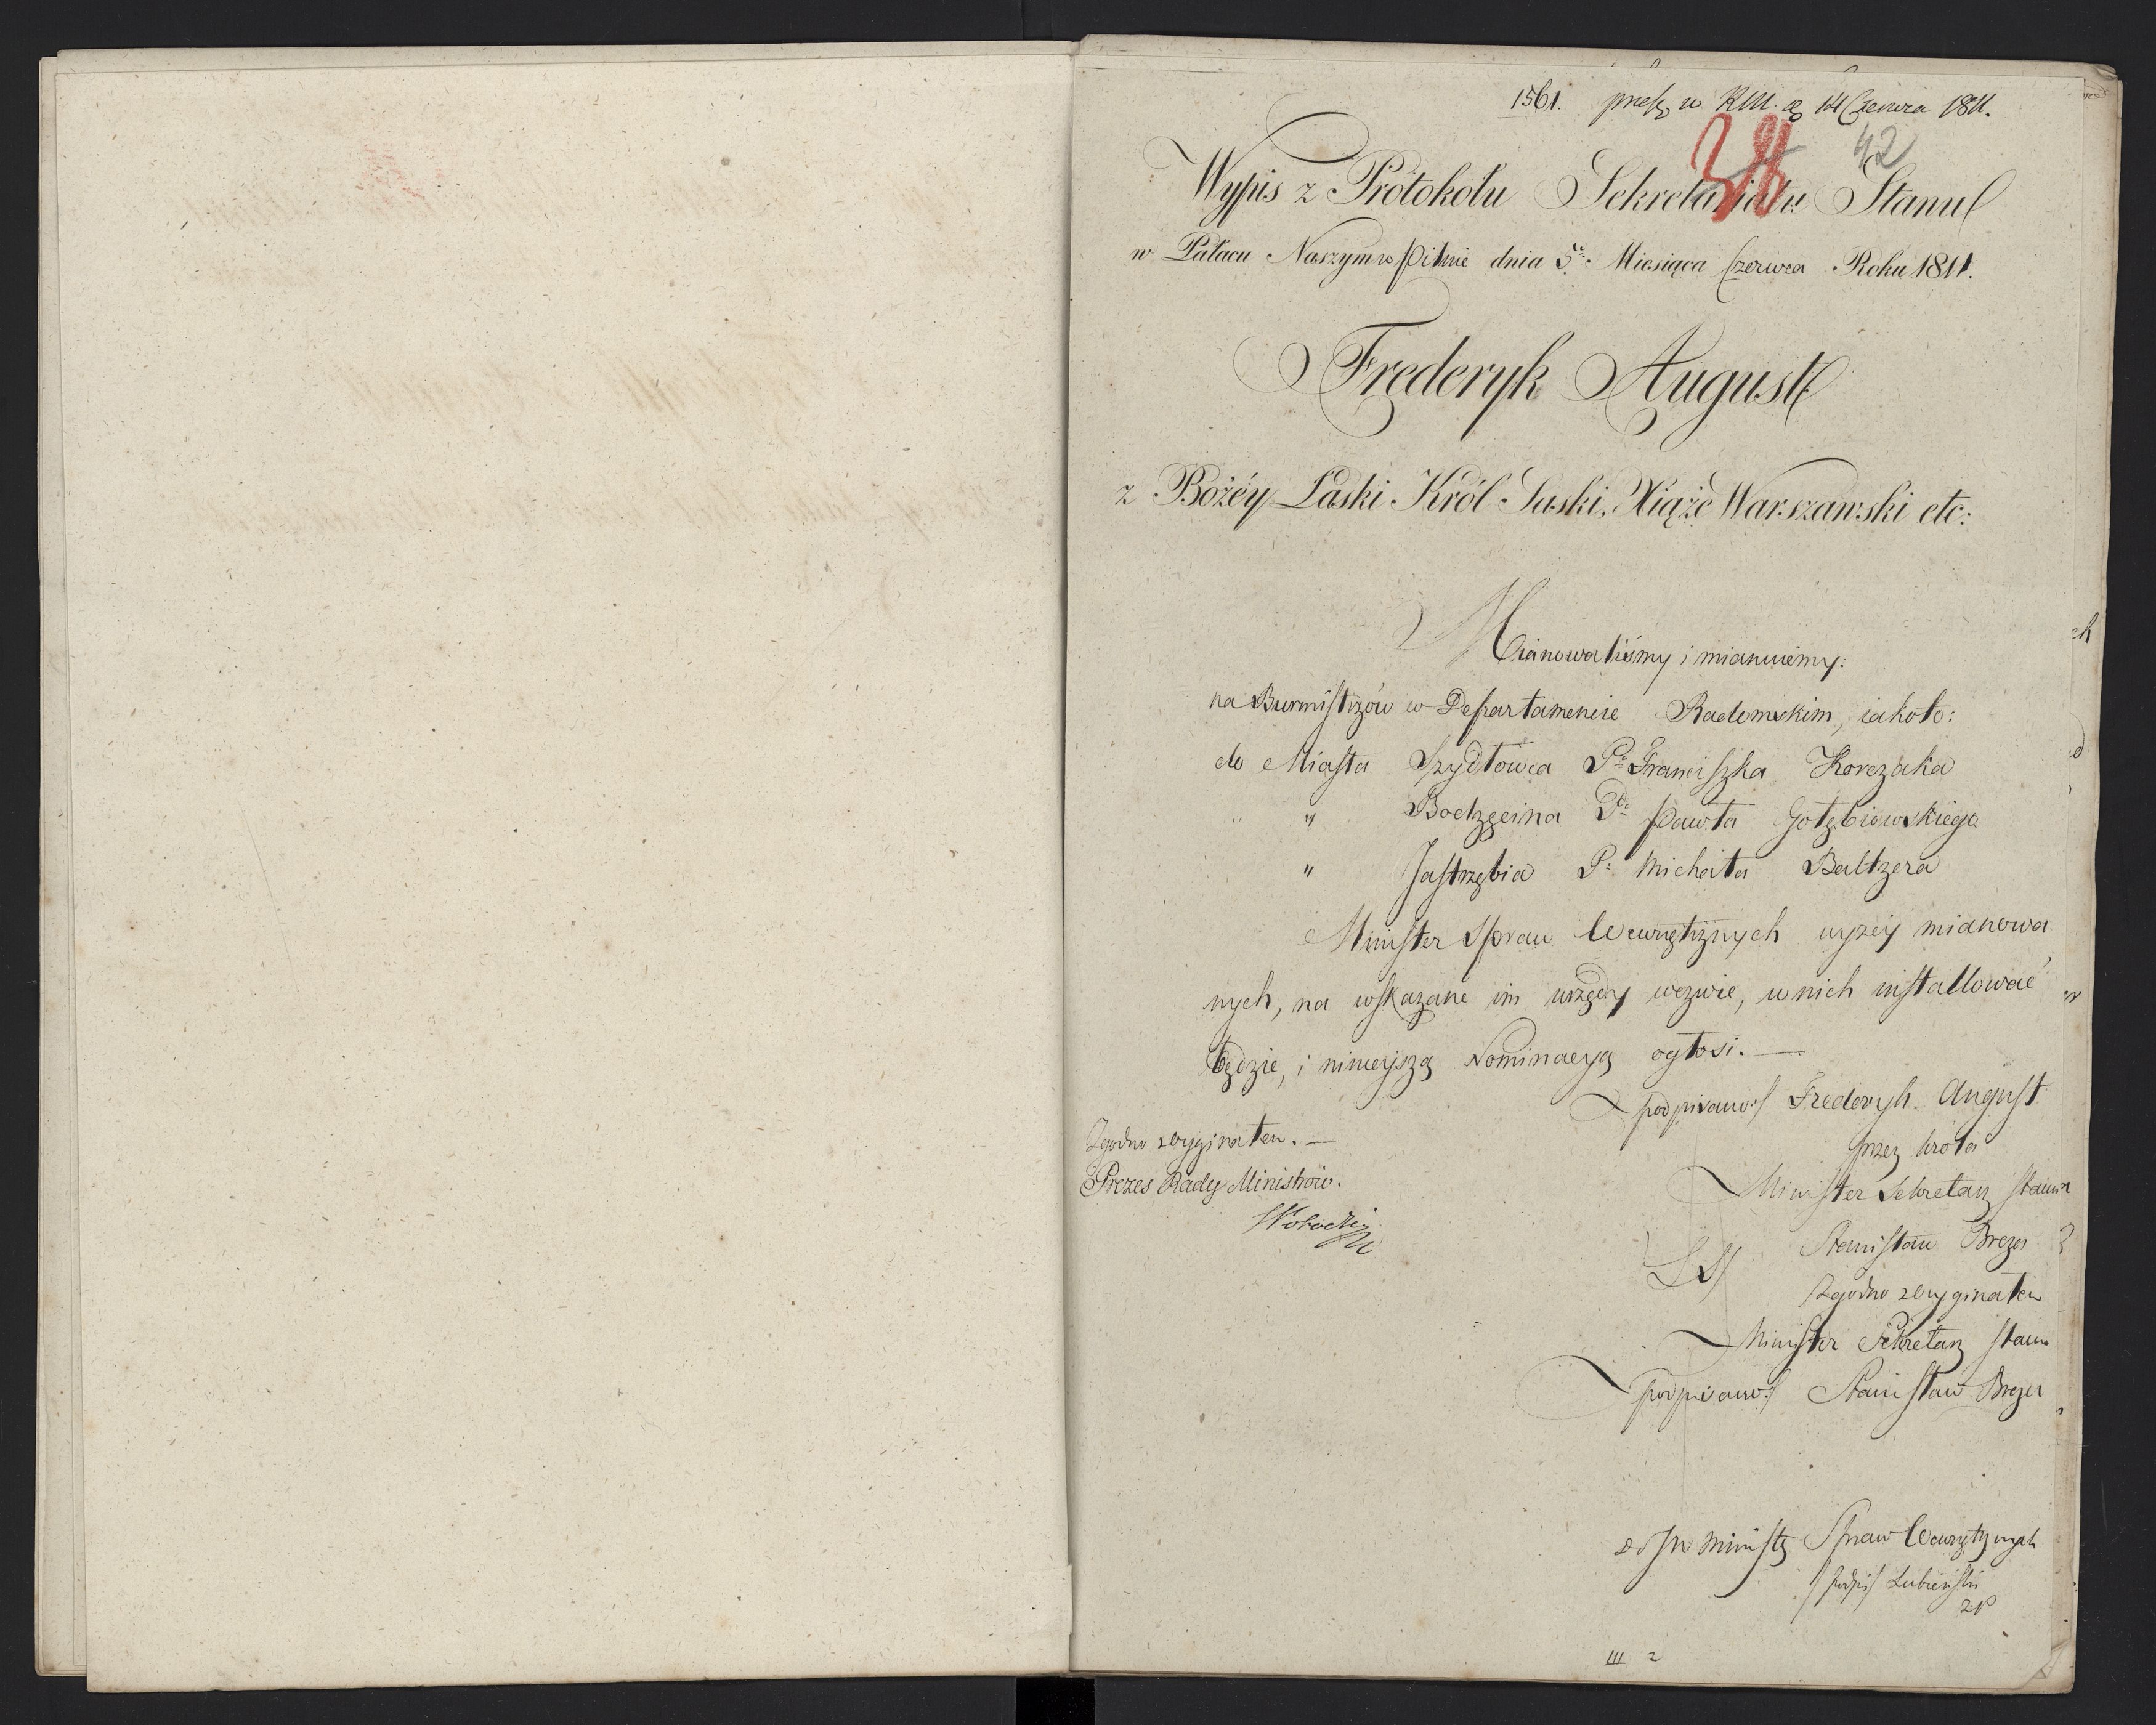 1561. w RM. 14 Czerwca 1811.
38 42
Wypis z Protokołu Sekretariatu Stanu
w Pałacu Naszym w Pilnie dnia 5go Miesiąca Czerwca Roku 1811.
Frederyk August
z Bożéy Łaski Król Saski, Xiąże Warszawski etc:
Mianowaliśmy i mianuiemy:
na Burmistrzów w Departamencie Radomskim, iakoto:
do Miasta Szydłowca P. Franciszka Korczaka
" Bodzęcina P. Pawła Gołębiowskiego
" Jastrzębia P. Michała Baltzera
Minister Spraw Wewnętrznych wyżey mianowa
nych, na wskazane im urzędy wezwie, w nich installować
będzie, i ninieyszą Nominacyą ogłosi. —
podpisano/ Frederyk August
przez Króla
Minister Sekretarz Stanu
Stanisław Breza
LS/
Zgodno z Oryginałem
Minister Sekretarz Stanu
podpisano/ Stanisław Breza
Zgodno z Oryginałem. —
Prezes Rady Ministrów.
do JW Ministra Spraw Wewnętrznych
/podpis/ Lubieński
III 2